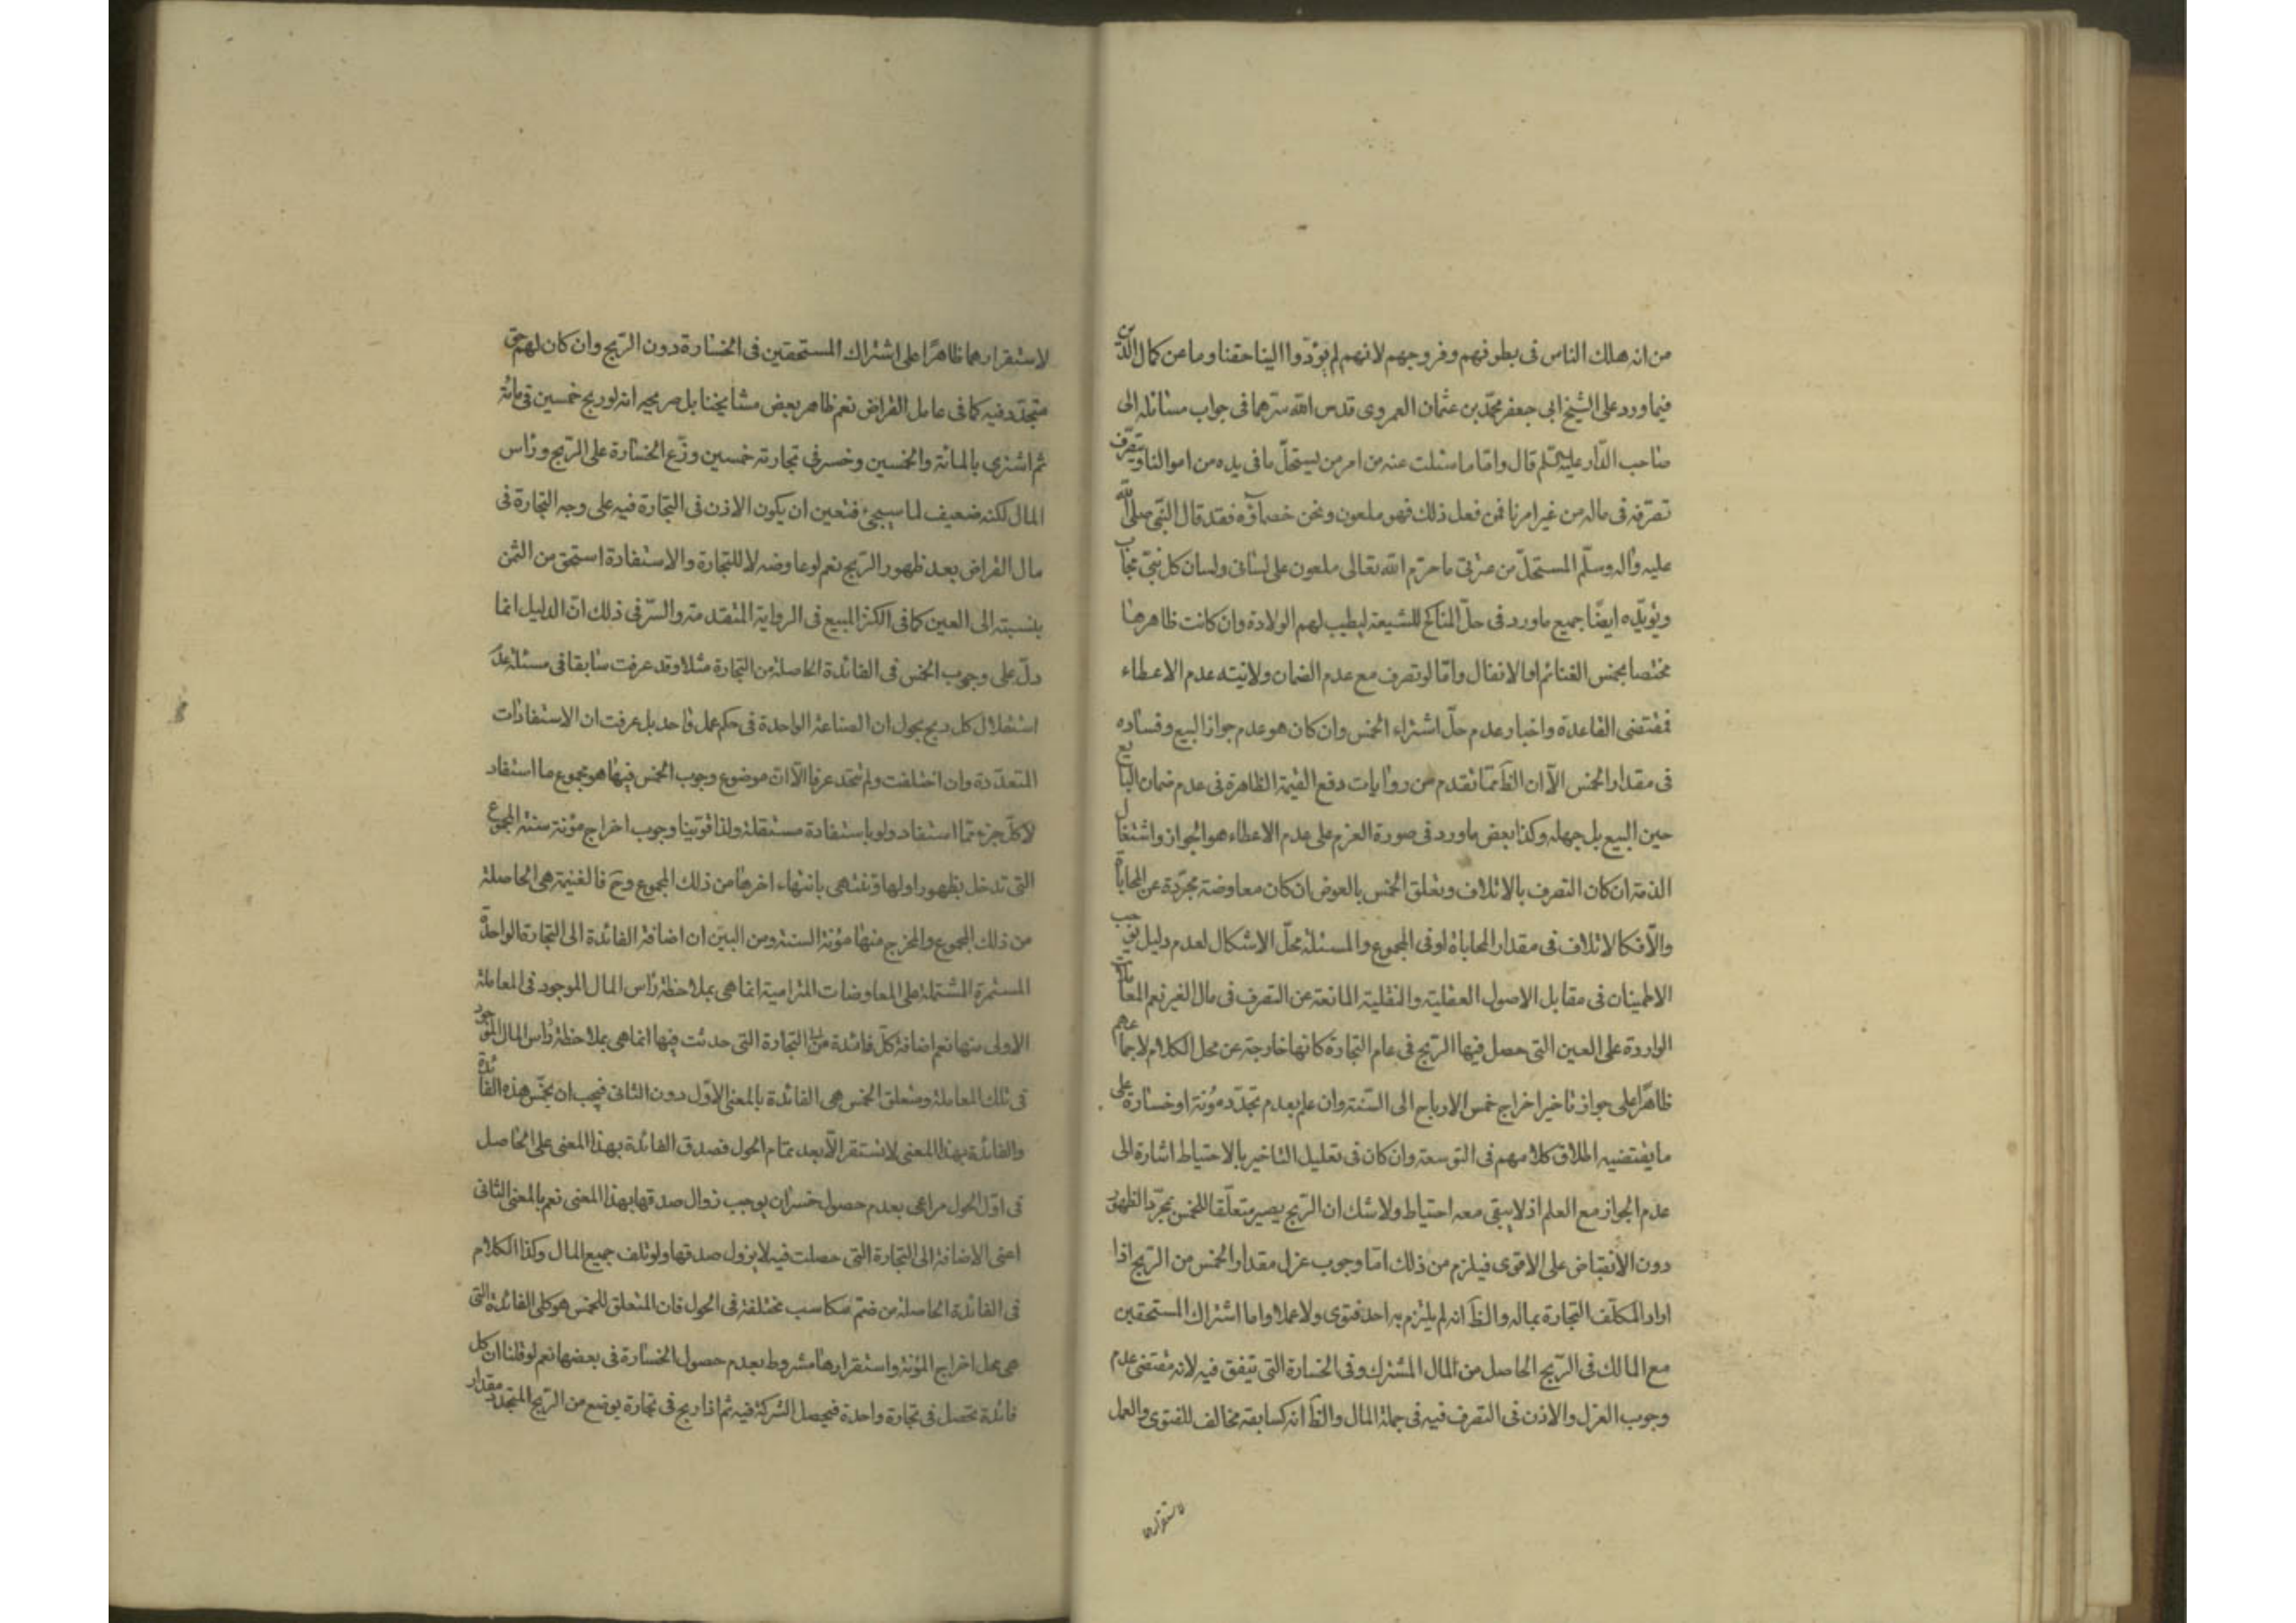 من انه هلك الناس فى بطونهم وفروجهم لانهم لم يؤدّوا الينا حقنا وما عن كمال الدّين
فيما ورد على الشيخ ابى جعفر محمّد بن عثمان العمروى قدس الله سرّهما فى جواب مسائله الى
صاحب الدّار عليه السّلم قال وامّا ما سئلت عنه من امر من يستحلّ ما فى يده من اموالنا ويتصرّف
تصرّفه فى ماله من غير امرنا فمن فعل ذلك فهو ملعون ونحن خصمآؤه فقد قال النّبى صلّى الله
عليه واله وسلّم المستحلّ من عترتى ما حرّم الله تعالى ملعون على لسانى ولسان كل نبىّ مجاب
ويؤيّده ايضًا جميع ما ورد فى حلّ المناكح للشيعة ليطيب لهم الولادة وان كانت ظاهرها
مختصا بخمس الغنائم او الانفال وامّا لو تصرف مع عدم الضمان ولانيته عدم الاعطاء
فمقتضى القاعدة واخبار عدم حلّ اشتراء الخمس وان كان هو عدم جواز البيع وفساده
فى مقدار الخمس الّا ان الظَ ممّا تقدم من روايات دفع القيمة الظاهرة فى عدم ضمان البايع
حين البيع بل جهله وكذا بعض ما ورد فى صورة العزم على عدم الاعطاء هو الجواز واشتغال
الذمة ان كان التصرف بالاتلاف وتعلق الخمس بالعوض ان كان معاوضة مجرّدة عن المحاباة
والّا فكالاتلاف فى مقدار المحاباة او فى المجموع والمسئلة محلّ الاشكال لعدم دليل يوجب
الاطمينان فى مقابل الاصول العقلية والنقلية المانعة عن التصرف فى مال الغير نعم المعاملات
الواردة على العين التى حصل فيها الربح فى عام التجارة كانها خارجة عن محل الكلام لاجماعهم
ظاهرًا على جواز تاخير اخراج خمس الارباح الى السّنة وان علم بعدم تجدّد مؤنة او خسارة على
ما يقتضيه اطلاق كلامهم فى التوسعة وان كان فى تعليل التاخير بالاحتياط اشارة الى
عدم الجواز مع العلم اذ لا يبقى معه احتياط ولا شك ان الرّبح يصير متعلّقا للخمس بمجرّد الظهور
دون الانقباض على الاقوى فيلزم من ذلك امّا وجوب عزل مقدار الخمس من الرّبح اذا
اراد المكلّف التجارة بماله والظَ انه لم يلتزم به احد فتوى ولا عملا واما اشتراك المستحقين
مع المالك فى الرّبح الحاصل من المال المشترك وفى الخسارة التى تتفق فيه لانه مقتضى عدم
وجوب العزل والاذن فى التصرف فيه فى جملة المال والظَ انه كسابقه مخالف للفتوى والعمل
لاستقرارهما
لاستقرارهما ظاهرًا على اشتراك المستحقين فى الخسارة دون الرّبح وان كان لهم حق
متجدّد فيه كما فى عامل القراض نعم ظاهر بعض مشايخنا بل صريحه انه لو ربح خمسين فى مائة
ثم اشترى بالمائة والخمسين وخسر فى تجارته خمسين وزّع الخسارة على الرّبح وراس
المال لكنه ضعيف لما سيجىء فتعين ان يكون الاذن فى التجارة فيه على وجه التجارة فى
مال القراض بعد ظهور الرّبح نعم لو عاوضه لا للتجارة والاستفادة استحق من الثمن
بنسبته الى العين كما فى الكنز المبيع فى الرواية المتقدمة والسّر فى ذلك انّ الدليل انما
دلّ على وجوب الخمس فى الفائدة الحاصلة من التجارة مثلا وقد عرفت سابقا فى مسئلة عدم
استقلال كل ربح بحول ان الصناعة الواحدة فى حكم عمل واحد بل عرفت ان الاستفادات
المتعدّدة وان اختلفت ولم تتحد عرفا الّا انّ موضوع وجوب الخمس فيها هو مجموع ما استفاد
لا كلّ جزء ممّا استفاد ولو باستفادة مستقلة ولذا قوّينا وجوب اخراج مؤنة سنة المجموع
التى تدخل بظهور اولها وتنتهى بانتهاء اخرها من ذلك المجموع وحَ فالغنيمة هى الحاصلة
من ذلك المجموع والمخرج منها مؤنة السنة ومن البيّن ان اضافة الفائدة الى التجارة الواحدة
المستمرة المشتملة على المعاوضات المترامية انما هى بملاحظة راس المال الموجود فى المعاملة
الاولى منها نعم اضافة كلّ فائدة من التجارة التى حدثت فيها انما هى بملاحظة راس المال الموجود
فى تلك المعاملة ومتعلق الخمس هى الفائدة بالمعنى الاوّل دون الثانى فيجب ان يخمّس هذه الفائدة
والفائدة بهذا المعنى لا تستقر الّا بعد تمام الحول فصدق الفائدة بهذا المعنى على الحاصل
فى اوّل الحول مراعى بعدم حصول خسران يوجب زوال صدقها بهذا المعنى نعم بالمعنى الثانى
اعنى الاضافة الى التجارة التى حصلت فيه لا يزول صدقها ولو تلف جميع المال وكذا الكلام
فى الفائدة الحاصلة من ضمّ مكاسب مختلفة فى الحول فان المتعلق للخمس هو كلى الفائدة التى
هى محل اخراج المؤنة واستقرارها مشروط بعدم حصول الخسارة فى بعضها نعم لو قلنا ان كل
فائدة تحصل فى تجارة واحدة فيحصل الشركة فيه ثم اذا ربح فى تجارة يوضع من الربح المتجدد مقدار